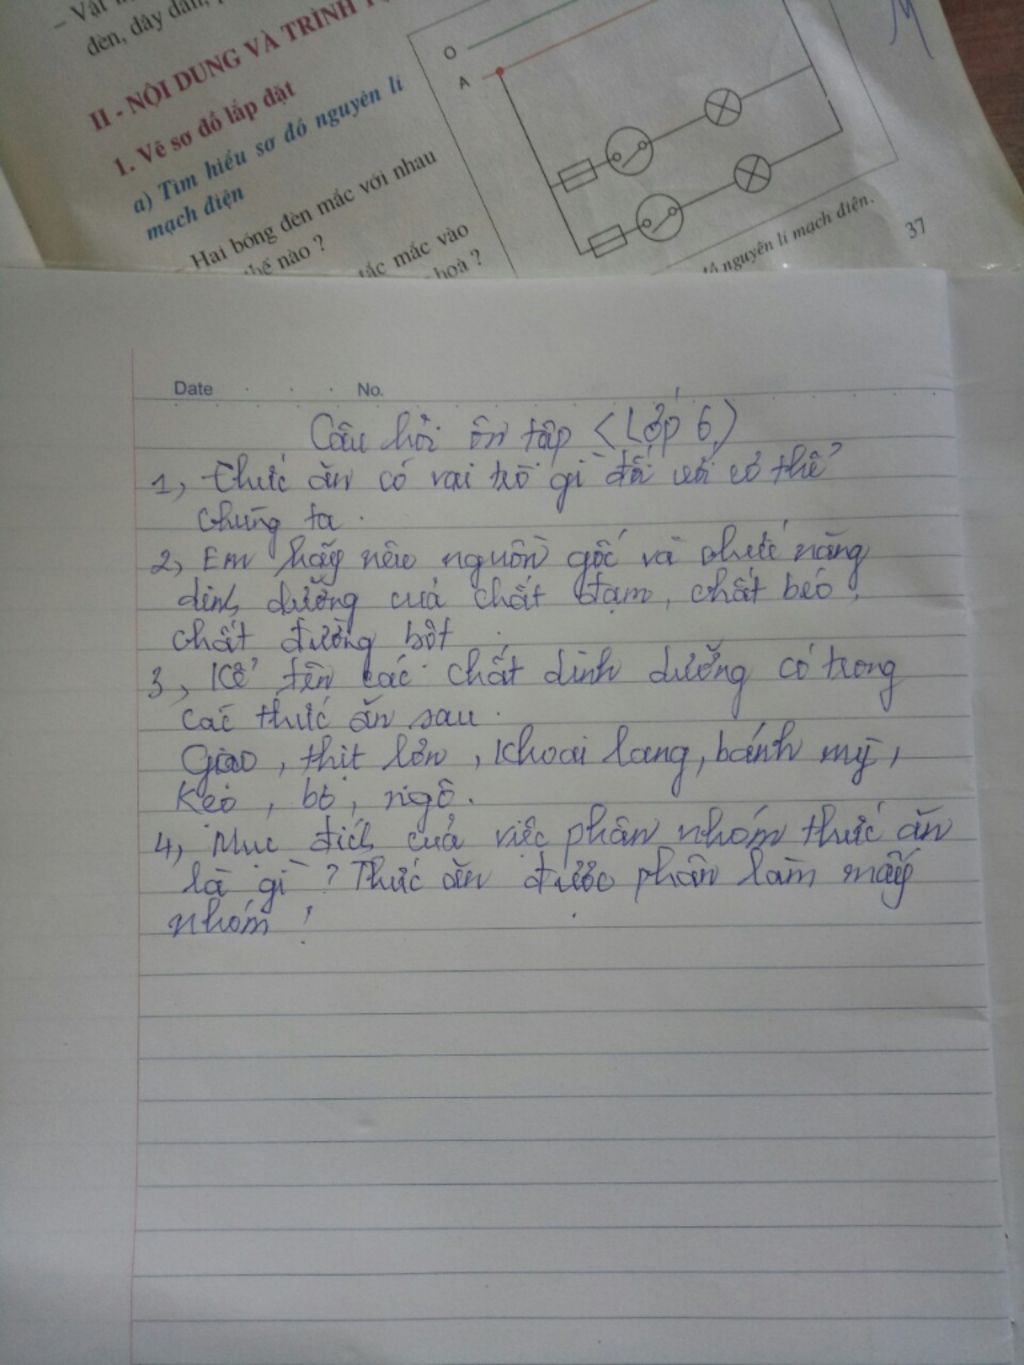 - Vật
đèn, dây dẫn,
II - NỘI DUNG VÀ TRÌNH
1. Vẽ sơ đồ lắp đặt
a) Tìm hiểu sơ đồ nguyên lí
mạch điện
Hai bóng đèn mắc với nhau
thế nào ?
tắc mắc vào
hoà ?
O
A
nguyên lí mạch điện.
37
Date No.
Câu hỏi ôn tập <Lớp 6>
1, Thức ăn có vai trò gì đối với cơ thể
chúng ta.
2, Em hãy nêu nguồn gốc và chức năng
dinh dưỡng của chất đạm, chất béo,
chất đường bột.
3, Kể tên các chất dinh dưỡng có trong
các thức ăn sau.
Gạo, thịt lợn, khoai lang, bánh mỳ,
Kẹo, bơ, ngô.
4, Mục đích của việc phân nhóm thức ăn
là gì ? Thức ăn được phân làm mấy
nhóm !